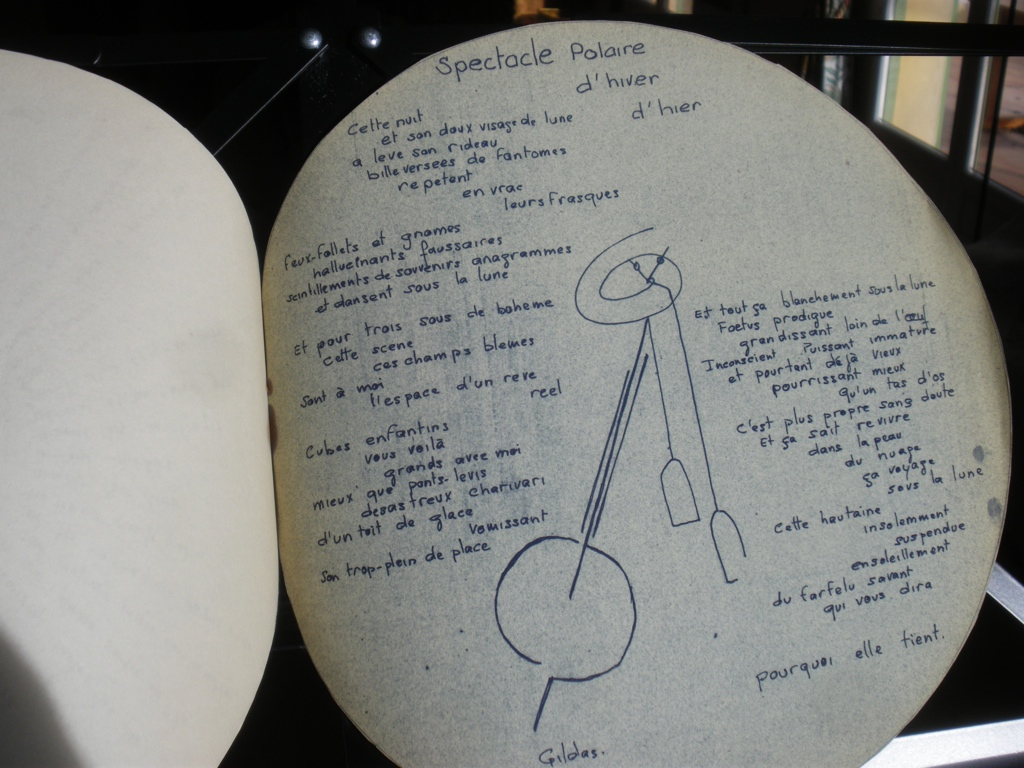 Spectacle Polaire
d'hiver
d'hier
Cette nuit
et son doux visage de lune
a levé son rideau
bille versees de fantomes
repetent
en vrac
leurs frasques
feux-follets et gnomes
hallucinants faussaires
scintillements de souvenirs anagrammes
et dansent sous la lune
Et pour trois sous de boheme
cette scene
ces champs blemes
sont à moi
l'espace d'un reve
reel
Cubes enfantins
vous voilà
grands avec moi
mieux que ponts-levis
desastreux charivari
d'un toit de glace
vomissant
son trop-plein de place
Et tout ça blanchement sous la lune
Foetus prodigue
grandissant loin de l'oeuf
Inconscient Puissant immature
et pourtant déjà vieux
pourrissant mieux
qu'un tas d'os
c'est plus propre sans doute
Et ça sait revivre
dans la peau
du nuage
ça voyage
sous la lune
Cette hautaine
insolemment
suspendue
ensoleillement
du farfelu savant
qui vous dira
pourquoi elle tient.
Gildas.